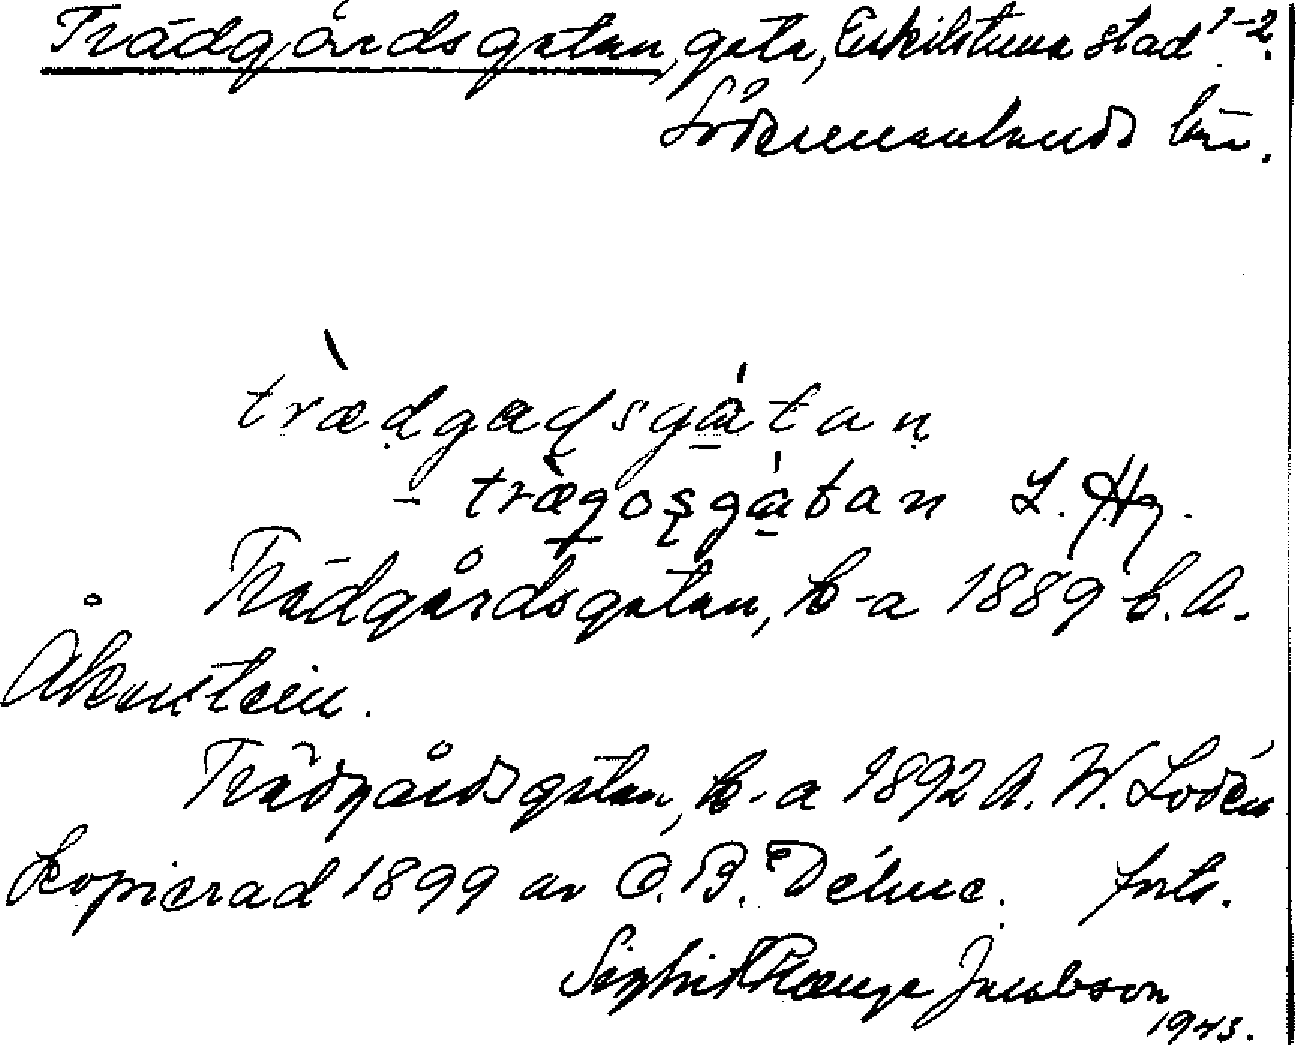 Trädgårdsgatan, gata, Eskilstuna stad 1-2.
Södermanlands län.
trædgadsgatan
- trægosgatan L. Hg.
Trädgårdsgatan, k-a 1889 C. A.
Åkerstein.
Trädgårdsgatan, k-a 1892 A. W. Lodén
kopierad 1899 av O. B. Délme. forts.
Sigfrid Jacobson
1943.